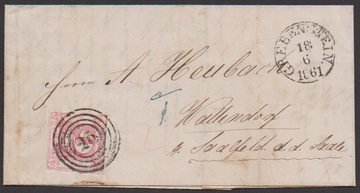 GREBENSTEIN
18
6
1861
Herrn A. Heubach
Wallendorf
b. Saalfeld a. d. Saale